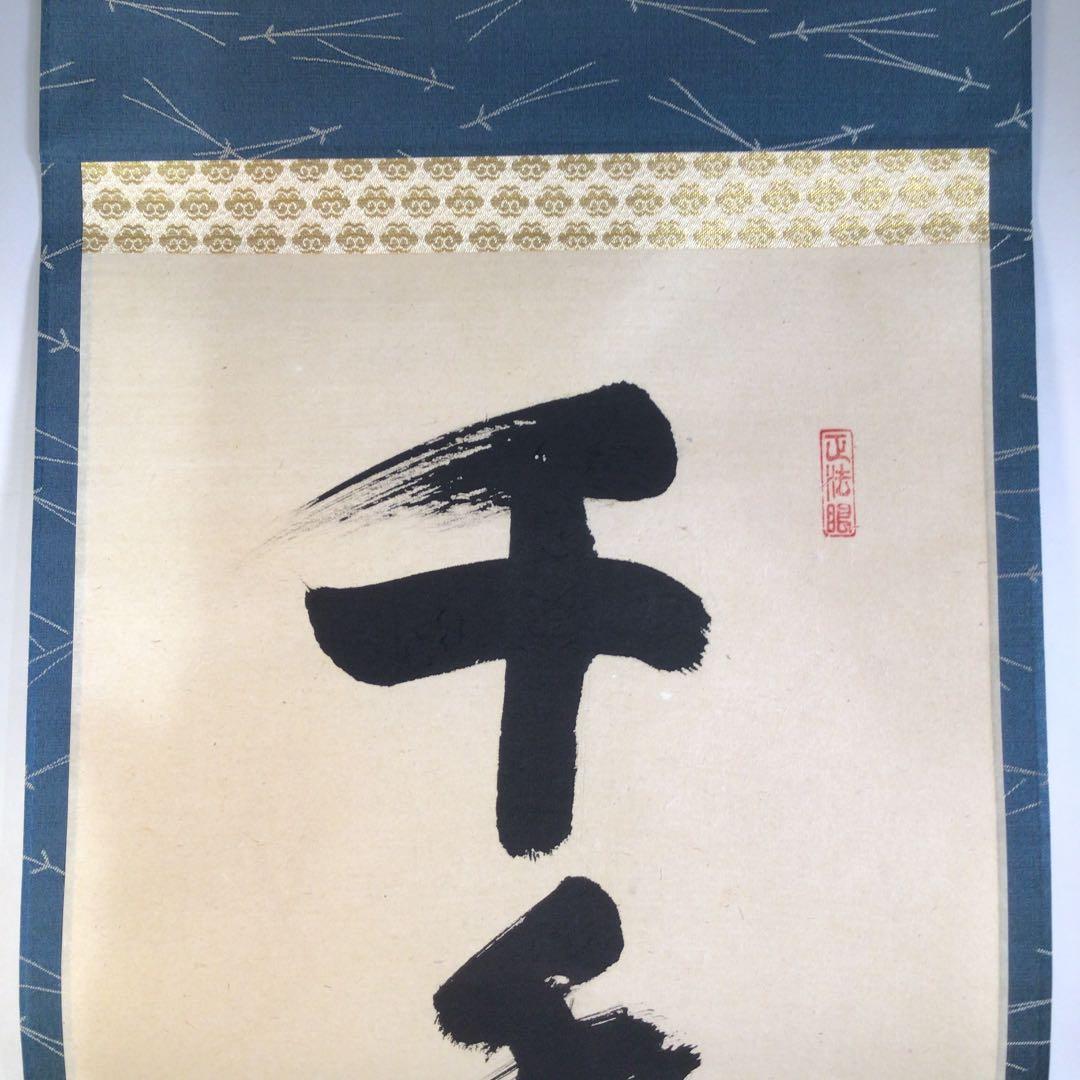 正法眼
千